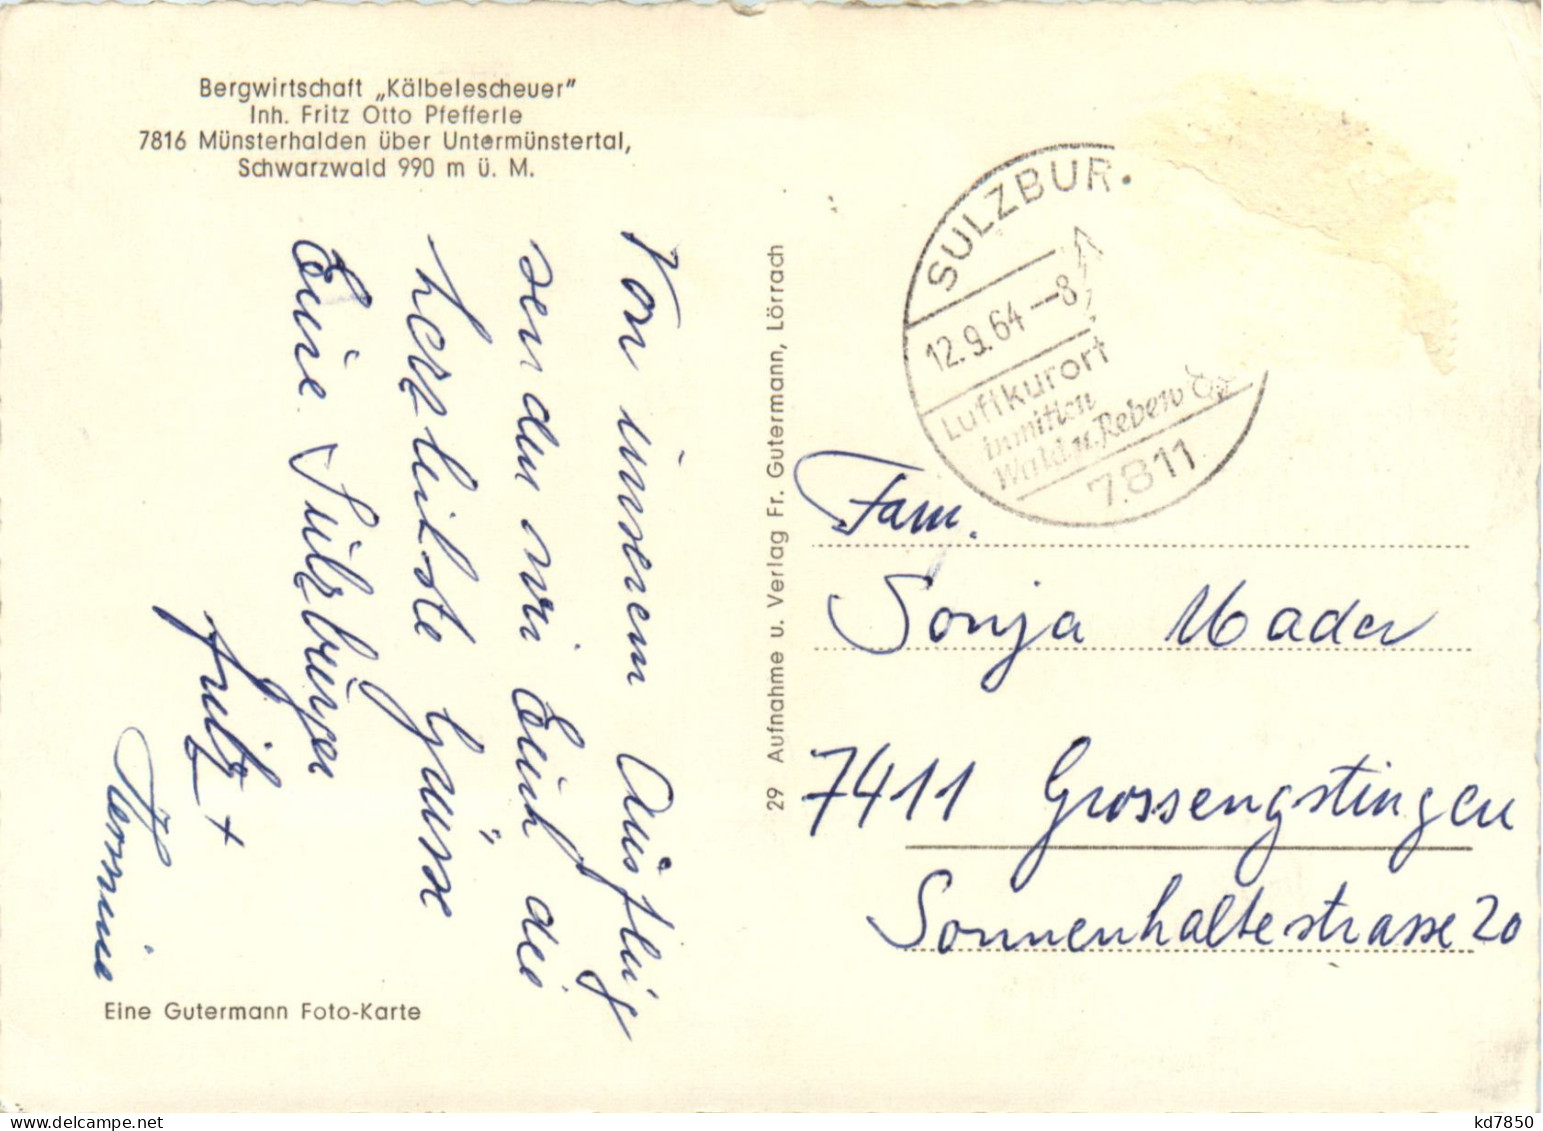 Bergwirtschaft „Kälbelescheuer"
Inh. Fritz Otto Pfefferle
7816 Münsterhalden über Untermünstertal,
Schwarzwald 990 m ü. M.
Von unserem Ausflug
senden wir Euch die
herzlichste Grüsse
Eure Sulzburger
Fritz +
Hermine
Eine Gutermann Foto-Karte
29 Aufnahme u. Verlag Fr. Gutermann, Lörrach
SULZBUR
12.9.64--8
Luftkurort
inmitten
Wald u. Reben
7811
Fam.
Sonja Mader
7411 Grossengstingen
Sonnenhaltestrasse 20
kd7850